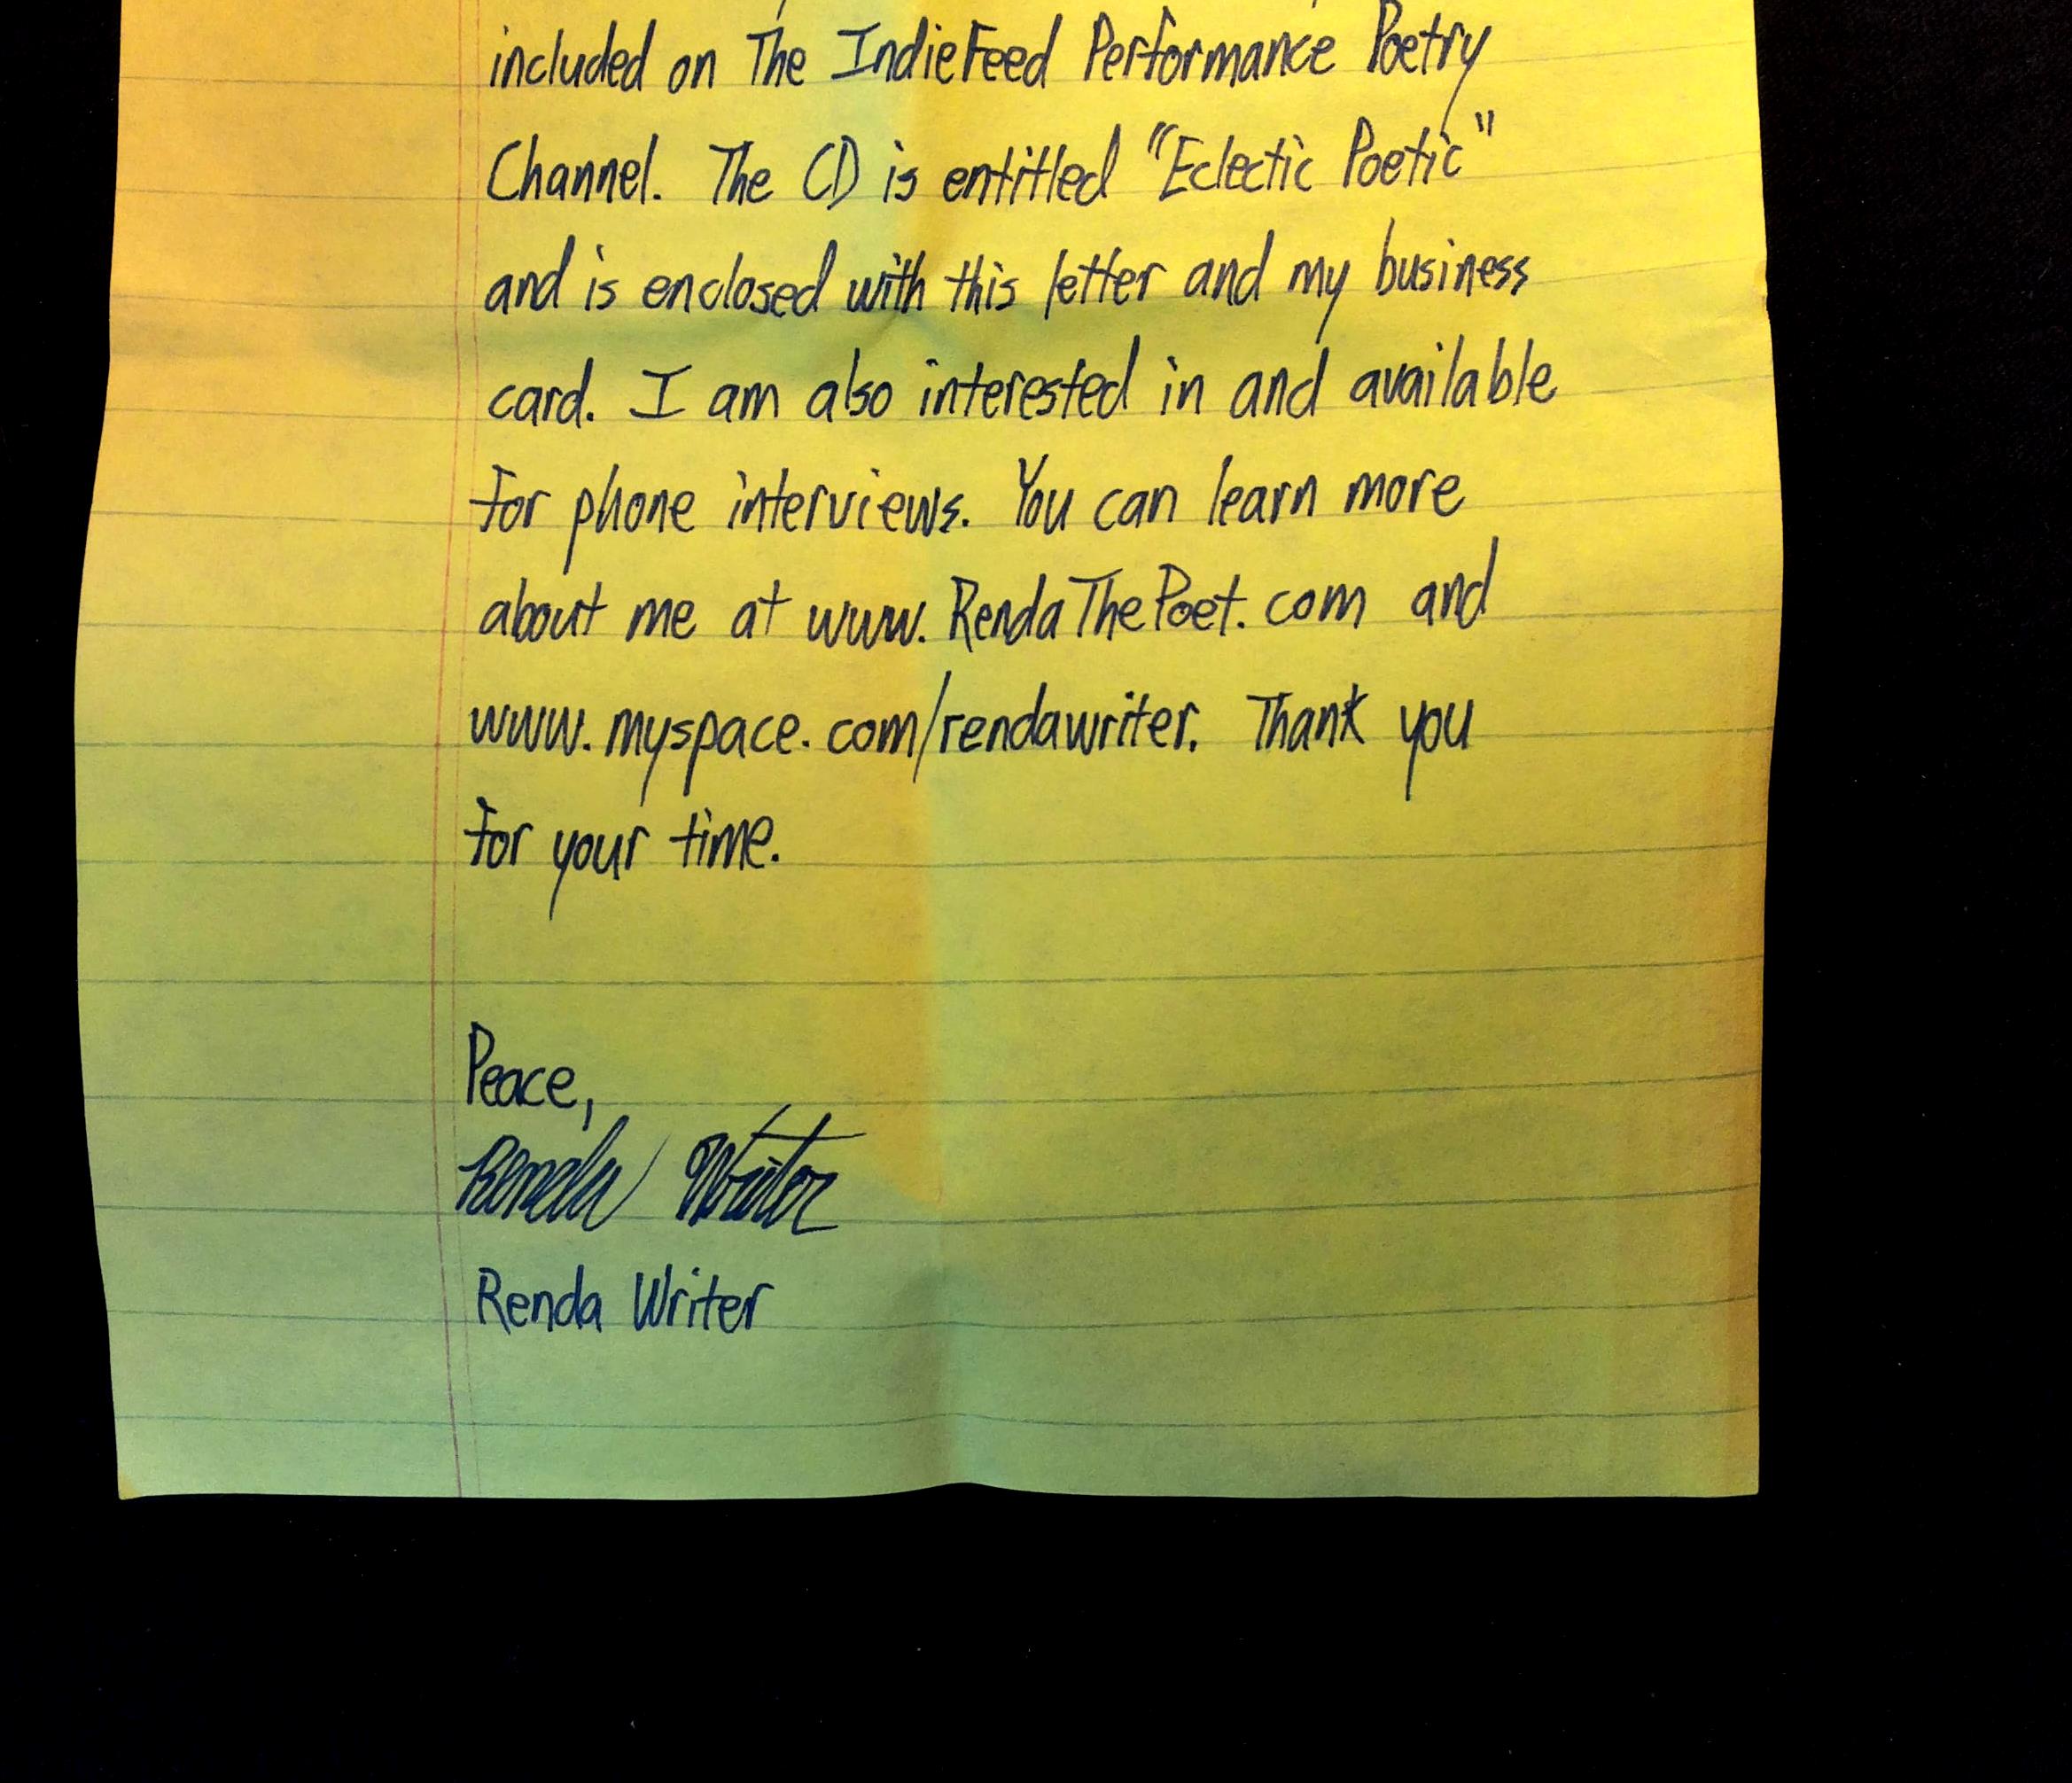 included on The IndieFeed Performance Poetry
Channel. The CD is entitled "Eclectic Poetic"
and is enclosed with this letter and my business
card. I am also interested in and available
for phone interviews. You can learn more
about me at www.RendaThePoet.com and
www.myspace.com/rendawriter. Thank you
for your time.
Peace,
Renda Writer
Renda Writer